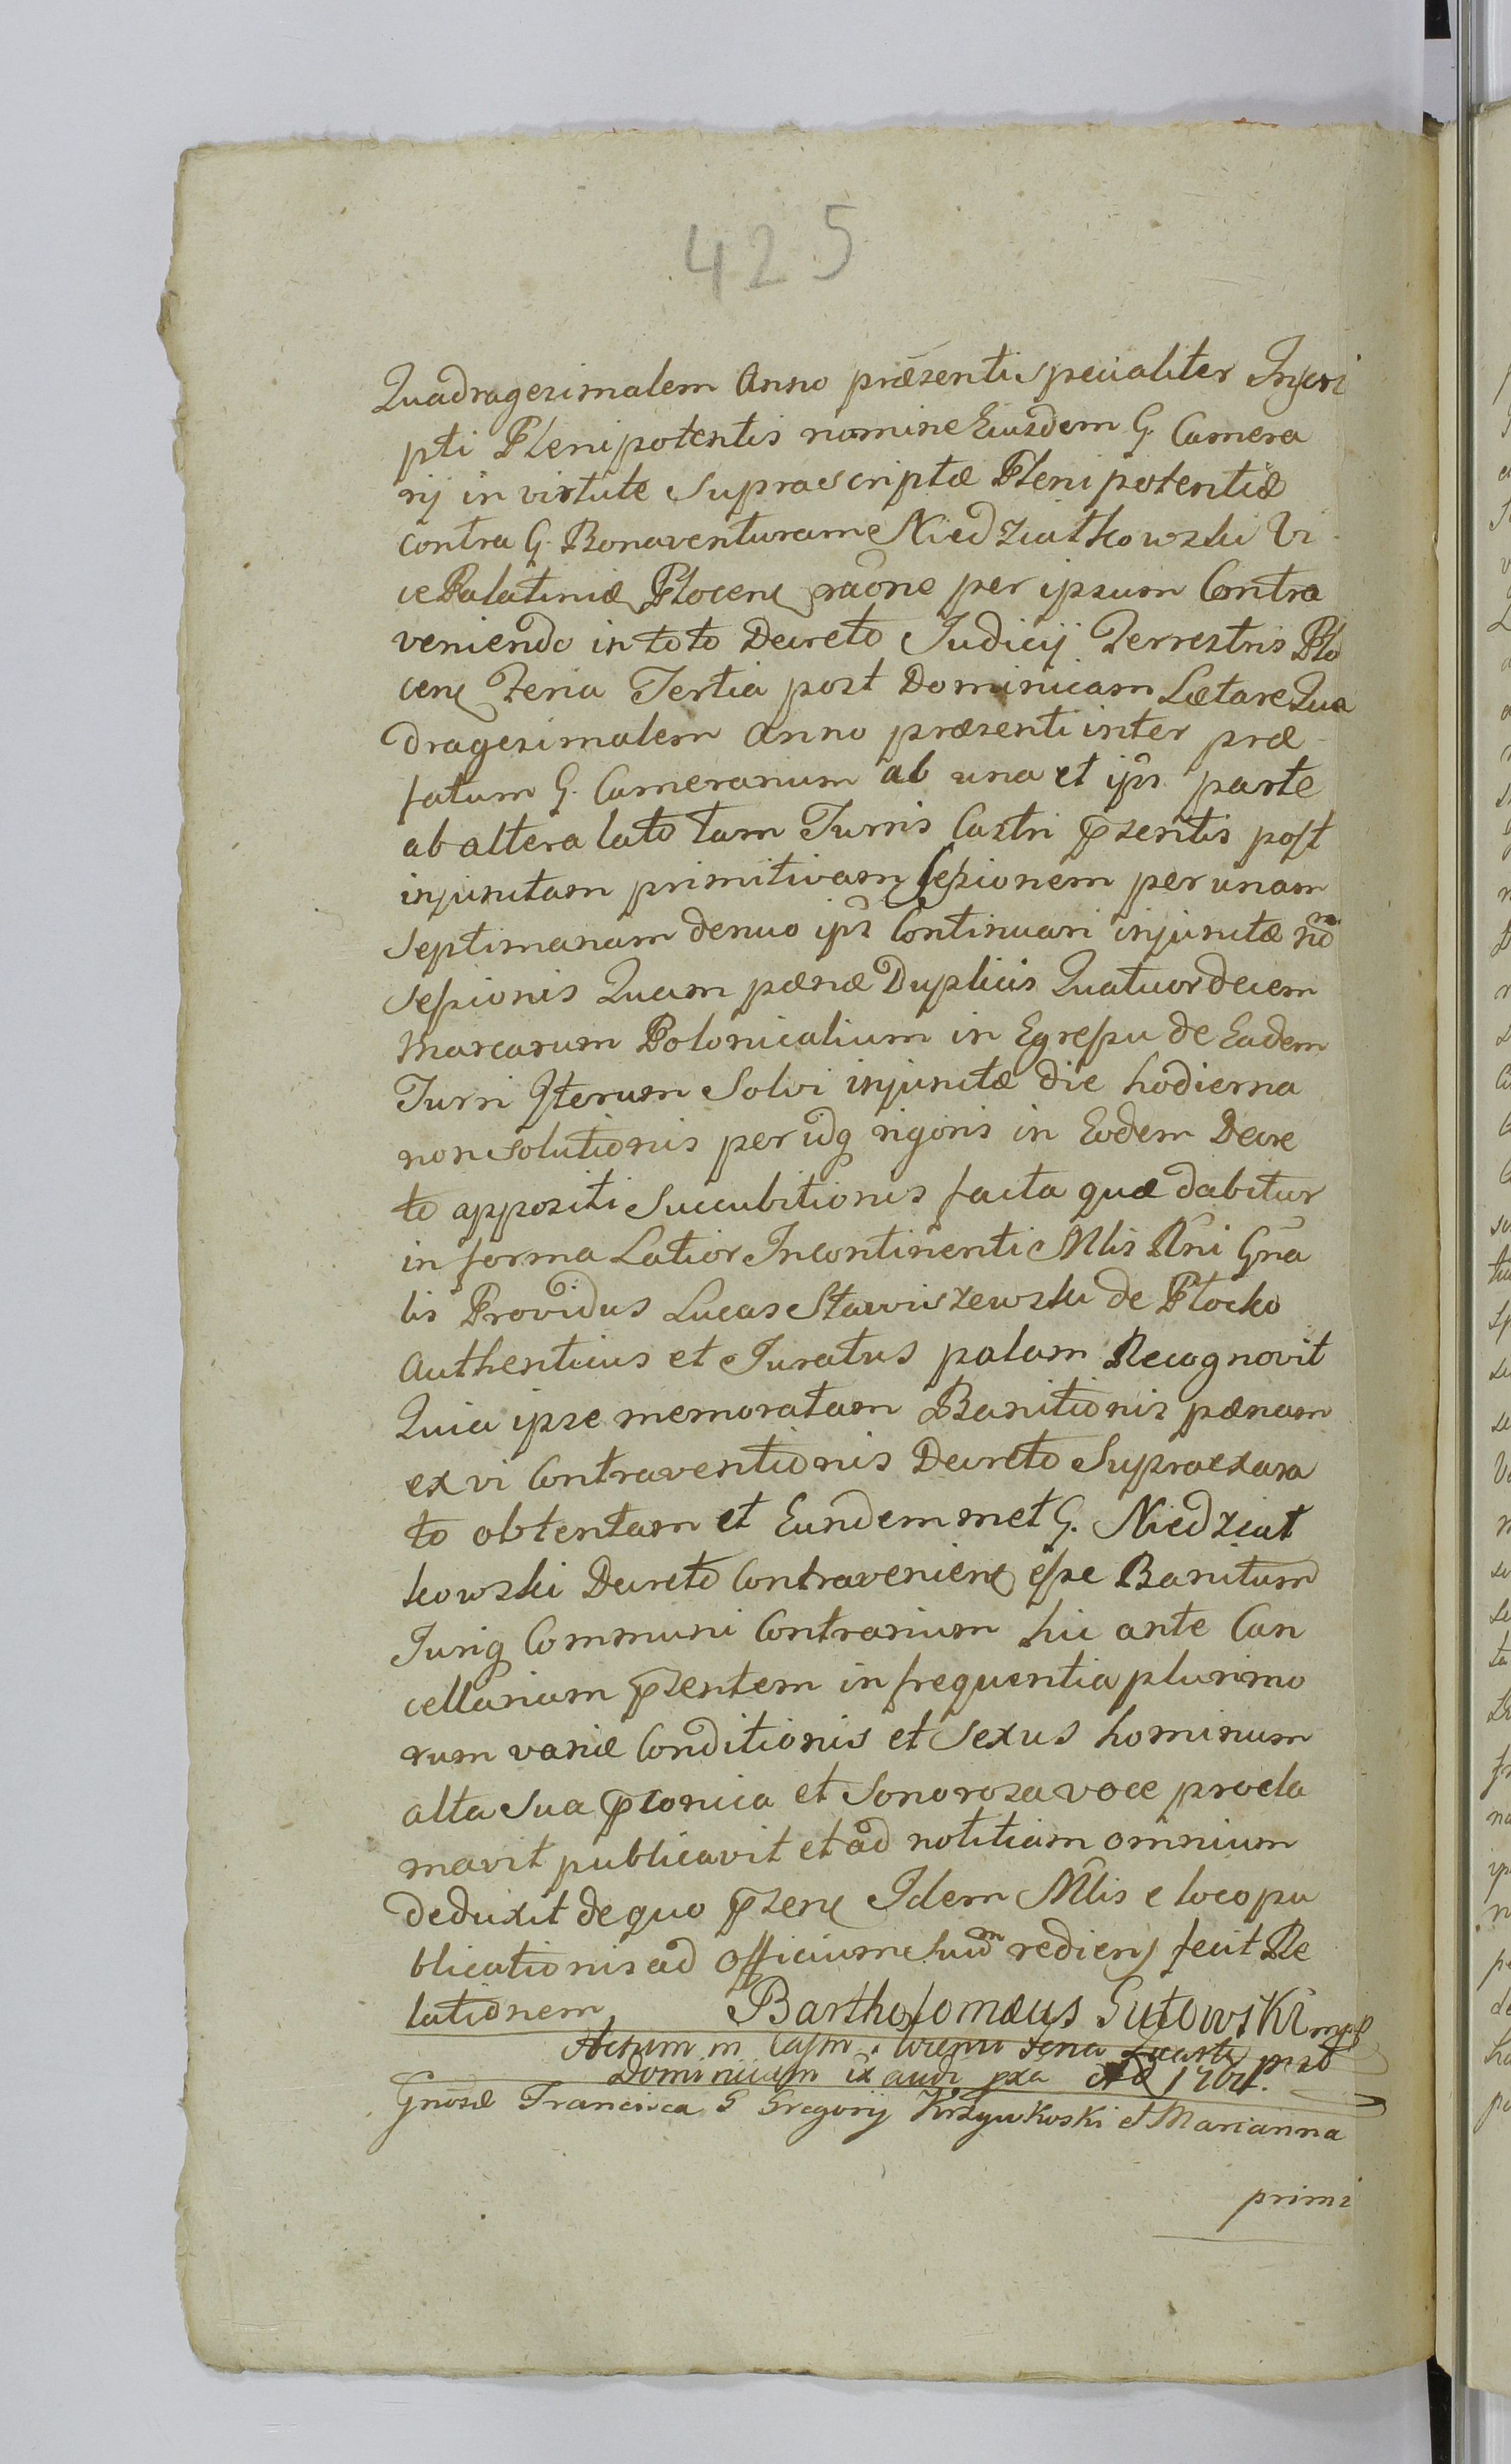 425
Quadragesimalem Anno præsenti specialiter Inscri
pti Plenipotentis nomine Eiusdem G. Camera
rij in virtute Suprascriptæ Plenipotentiæ
contra G. Bonaventuram Niedziałkowski Vi
ce Palatinũ Płocen raõne per ipsum Contra
veniendo in toto Decreto Judicij Terrestris Pło
cen Feria Tertia post Dominicam Lætare Qua
dragesimalem Anno præsenti inter præ
fatum G. Camerarium ab una et ips parte
ab altera lato tam Turris Castri p̃sentis post
injunctam primitivam sessionem per unam
Septimanam denuo ips Continuari injunctæ nõ
Sessionis Quam pænæ Duplicis Quatuordecem
Marcarum Polonicalium in Egressu de Eadem
Turri Iterum Solvi injunctæ die hodierna
non Solutionis per idq rigoris in Eodem Decre
to appositi Succubitionis facta quæ dabitur
in forma Latior Incontinenti Mlis Rñi Gña
lis Providus Lucas Stawiszewski de Płocko
Authenticus et Juratus palam Recognovit
Quia ipse memoratam Banitionis pænam
ex vi Contraventionis Decreto Supraexara
to obtentam et Eundemmet G. Niedział
kowski Decreto Contravenien esse Banitum
Juriq Communi Contrarium hic ante Can
cellariam p̃sentem in frequentia plurimo
rum variæ Conditionis et Sexus hominum
alta Sua p̃conica et Sonorosa voce procla
mavit publicavit et ad notitiam omnium
deduxit de quo p̃sens Idem Mlis e loco pu
blicationis ad Officium Suum rediens fecit Re
lationem Bartholomæus Gutowski mp
Actum in Castro Feria Quarta post
Dominicam Exaudi pxa AD 1764.
Gnosæ Francisca G Gregorij Krzywkoski et Marianna
primi